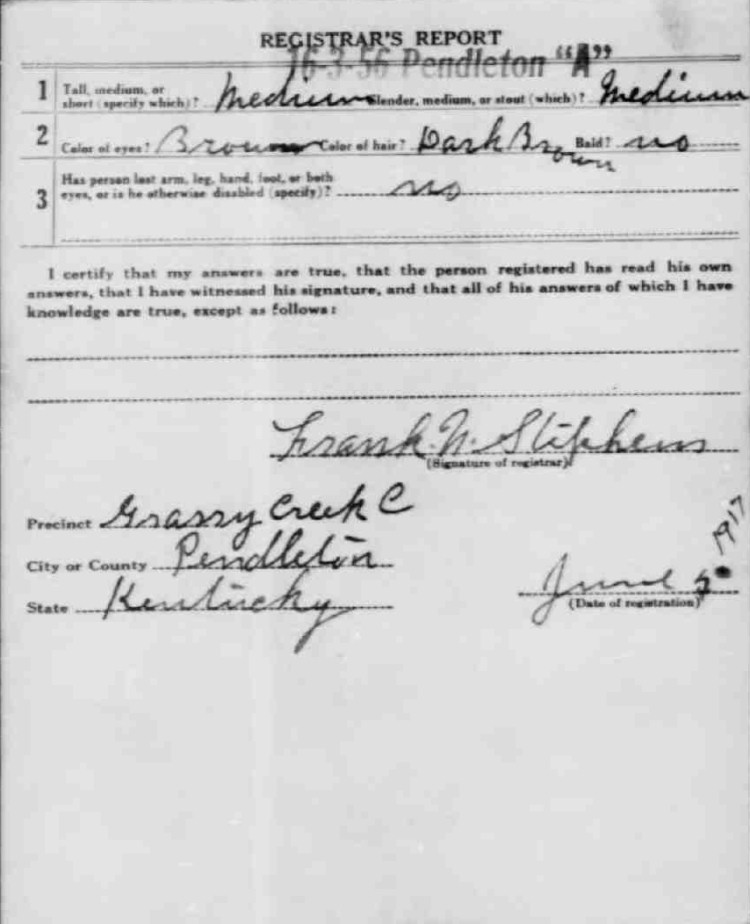 REGISTRAR'S REPORT
16-3-56 Pendleton "A"
1 Tall, medium, or short (specify which)? Medium Slender, medium, or stout (which)? Medium
2 Color of eyes? Brown Color of hair? Dark Brown Bald? no
3 Has person lost arm, leg, hand, foot, or both
eyes, or is he otherwise disabled (specify)? no
I certify that my answers are true, that the person registered has read his own
answers, that I have witnessed his signature, and that all of his answers of which I have
knowledge are true, except as follows:
Frank N. Stephens
(Signature of registrar)
Precinct Grassy Creek C
City or County Pendleton
State Kentucky
June 5 1917
(Date of registration)